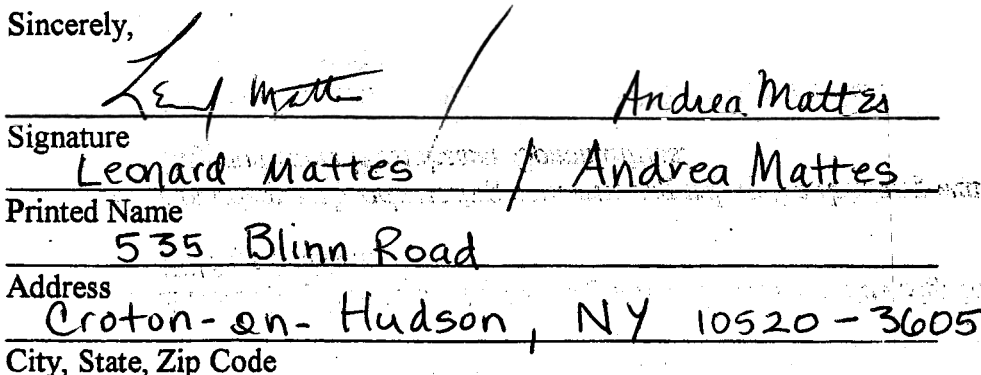 Sincerely,
Matt / Andrea Mattes
Signature
Leonard Mattes / Andrea Mattes
Printed Name
535 Blinn Road
Address
Croton-on-Hudson, NY 10520-3605
City, State, Zip Code